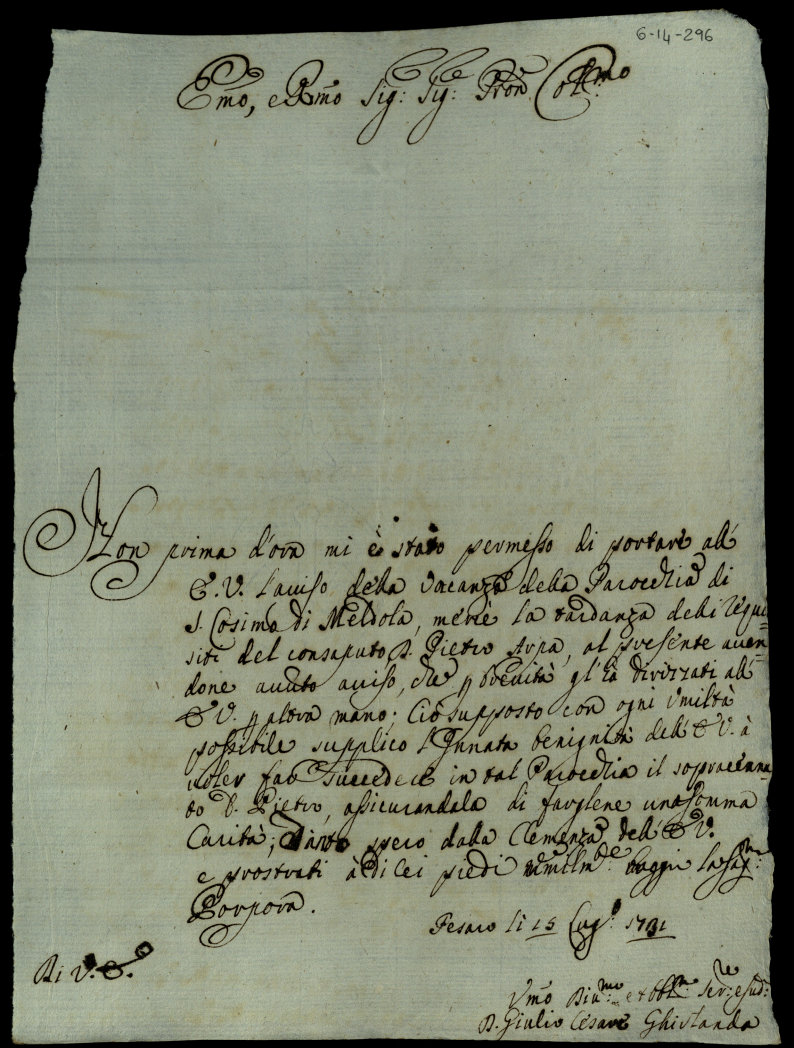 6-14-296
Emo, e Rmo Sig: Sig: Pron Colmo
Non prima d'ora mi è stato permesso di portare all'
E. V. l'auiso della vacanza della Parocchia di
S. Cosimo di Meldola, mercè la tardanza delli requi=
siti del consaputo D. Pietro Arpa, al presente auen=
done auuto auiso, che p breuità gl'ha dirizzati all'
E V. p altra mano; Ciò supposto con ogni vmiltà
possibile supplico l'Innata benignità dell'E V. à
uoler far succedere in tal Parocchia il sopracenna
to D. Pietro, assicurandola di fargliene una somma
Carità; Tanto spero dalla Clemenza dell'E V.
e prostrati à di lei piedi baggio la Sag:
Porpora.
Pesaro li 15 Lug.o 1731
Di V. E.
Vmo Diu:mo et obb:mo Ser:re e sud:
D. Giulio Cesare Ghirlanda